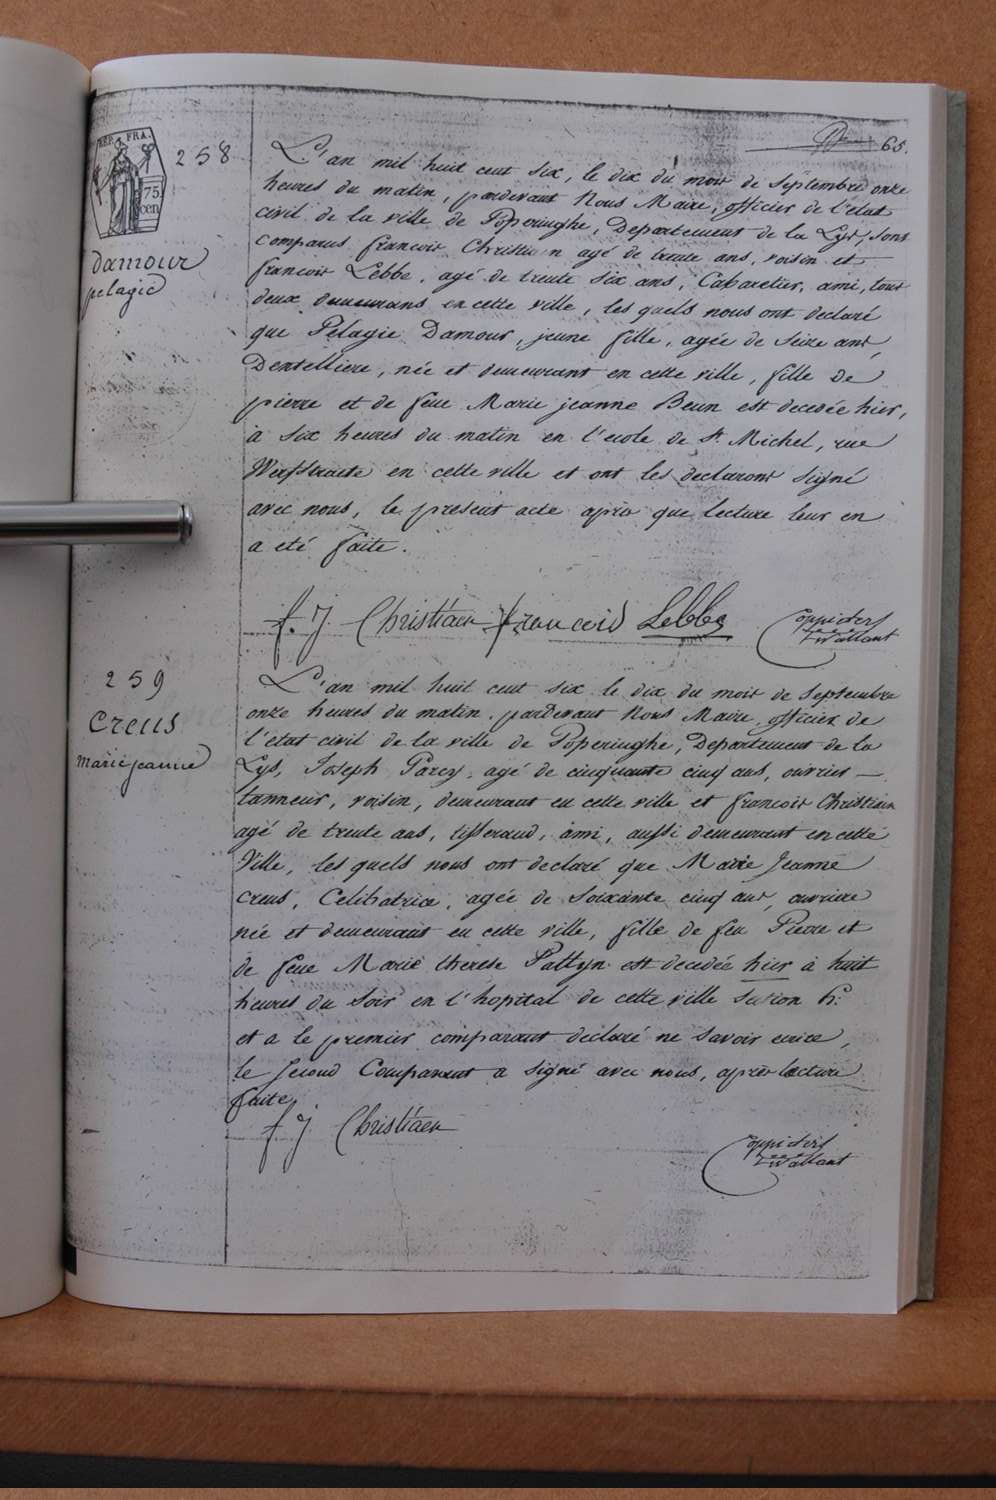 65.
REP. FRA.
75
cen
258
Damour
pelagie
L'an mil huit cent six, le dix du mois de septembre onze
heures du matin, pardevant Nous Maire, officier de l'état
civil de la ville de Poperinghe, Departement de la Lys, sont
comparus françois Christiaen agé de trente ans, voisin et
françois Lebbe, agé de trente six ans, Cabaretier, ami, tous
deux demeurans en cette ville, les quels nous ont declaré
que Pélagie Damour, jeune fille, agée de seize ans,
Dentelliere, née et demeurant en cette ville, fille de
pierre et de feue Marie jeanne Beun est decedée hier,
à six heures du matin en l'ecole de St. Michel, rue
en cette ville et ont les declarans signé
avec nous, le present acte après que lecture leur en
a eté faite.
f. J. Christiaen françois Lebbe
259
Creus
marie jeanne
L'an mil huit cent six le dix du mois de septembre
onze heures du matin. pardevant Nous Maire, officier de
l'état civil de la ville de Poperinghe, Departement de la
Lys, Joseph Parcy, agé de cinquante cinq ans, ouvrier
tanneur, voisin, demeurant en cette ville et françois Christiaen
agé de trente ans, tisserand, ami, aussi demeurant en cette
Ville, les quels nous ont declaré que Marie Jeanne
Creus, Celibatrice, agée de soixante cinq ans, ouvriere
née et demeurant en cette ville, fille de feu Pierre et
de feue Marie therese Pattyn est decedée hier à huit
heures du soir en l'hopital de cette ville
et a le premier comparant declaré ne savoir ecrire,
le second Comparant a signé avec nous, après lecture
faite.
f J Christiaen